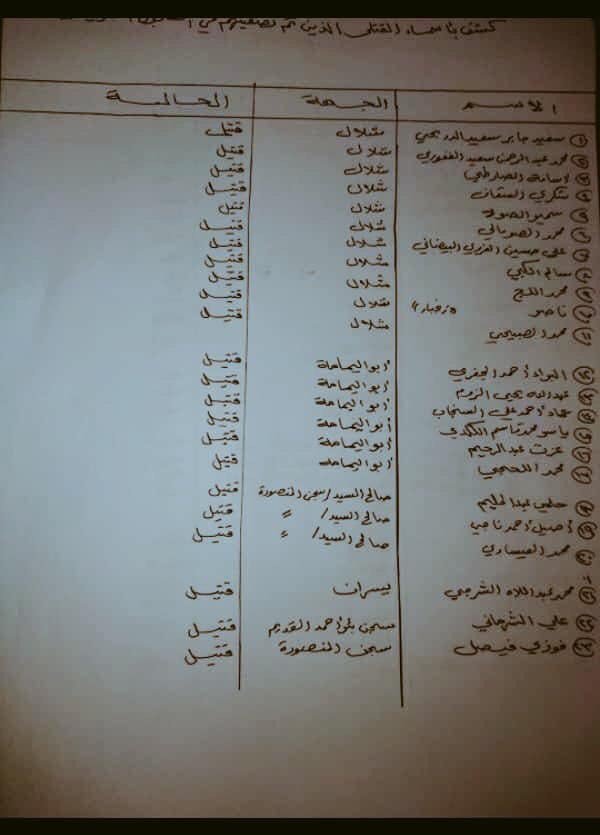 كشف بأسماء القتلى الذين تم تصفيتهم في
الاسم الجهة الحالة
١ سعيد جابر سعيد الدريحي شلال قتيل
٢ محمد عبدالرحمن سعيد شلال قتيل
٣ اسامة شلال قتيل
٤ شكري السقاف شلال قتيل
٥ سمير الصوفي شلال قتيل
٦ محمد الصومالي شلال قتيل
٧ علي حسين البيضاني شلال قتيل
٨ سالم الكلبي شلال قتيل
٩ محمد شلال قتيل
١٠ ناصر (زنجبار) شلال قتيل
١١ محمد الصبيحي شلال قتيل
١٢ أحمد الجفري أبو اليمامة قتيل
١٣ عبدالله يحيى أبو اليمامة قتيل
١٤ أحمد علي أبو اليمامة قتيل
١٥ ياسر محمد قاسم الكلدي أبو اليمامة قتيل
١٦ عزت عبدالرحيم أبو اليمامة قتيل
١٧ محمد اللحجي أبو اليمامة قتيل
١٨ حلمي عبدالحليم صالح السيد/سجن المنصورة قتيل
١٩ أصيل أحمد ناجي صالح السيد/ = قتيل
٢٠ محمد العيساوي صالح السيد/ = قتيل
٢١ محمد عبداللاه الشرجي يسران قتيل
٢٢ علي سجن بئر أحمد القديم قتيل
٢٣ فوزي فيصل سجن المنصورة قتيل